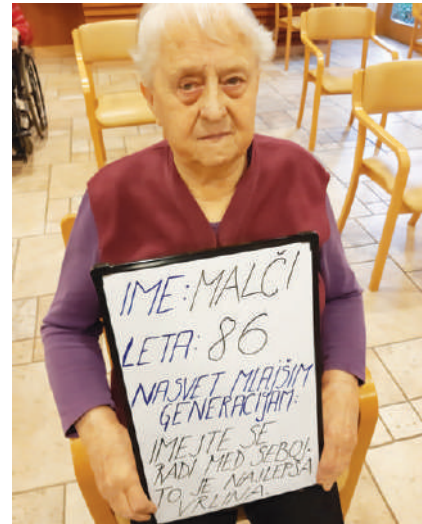 IME: MALČI
LETA: 86
NASVET MLAJŠIM
GENERACIJAM:
IMEJTE SE
RADI MED SEBOJ.
TO JE NAJLEPŠA
VRLINA.